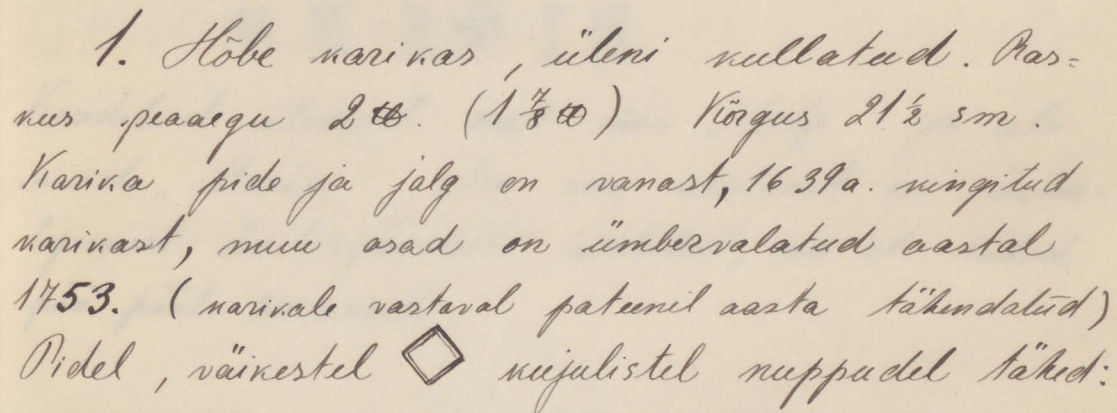 1. Hõbe karikas, üleni kullatud. Ras=
kus peaaegu 2 ℔. (1 7/8 ℔) Kõrgus 21 1/2 sm.
Karika pide ja jalg on vanast, 1639 a. kingitud
karikast, muu osad on ümbervalatud aastal
1753. (karikale vastaval pateenil aasta tähendatud)
Pidel, väikestel ◇ kujulistel nuppudel tähed: